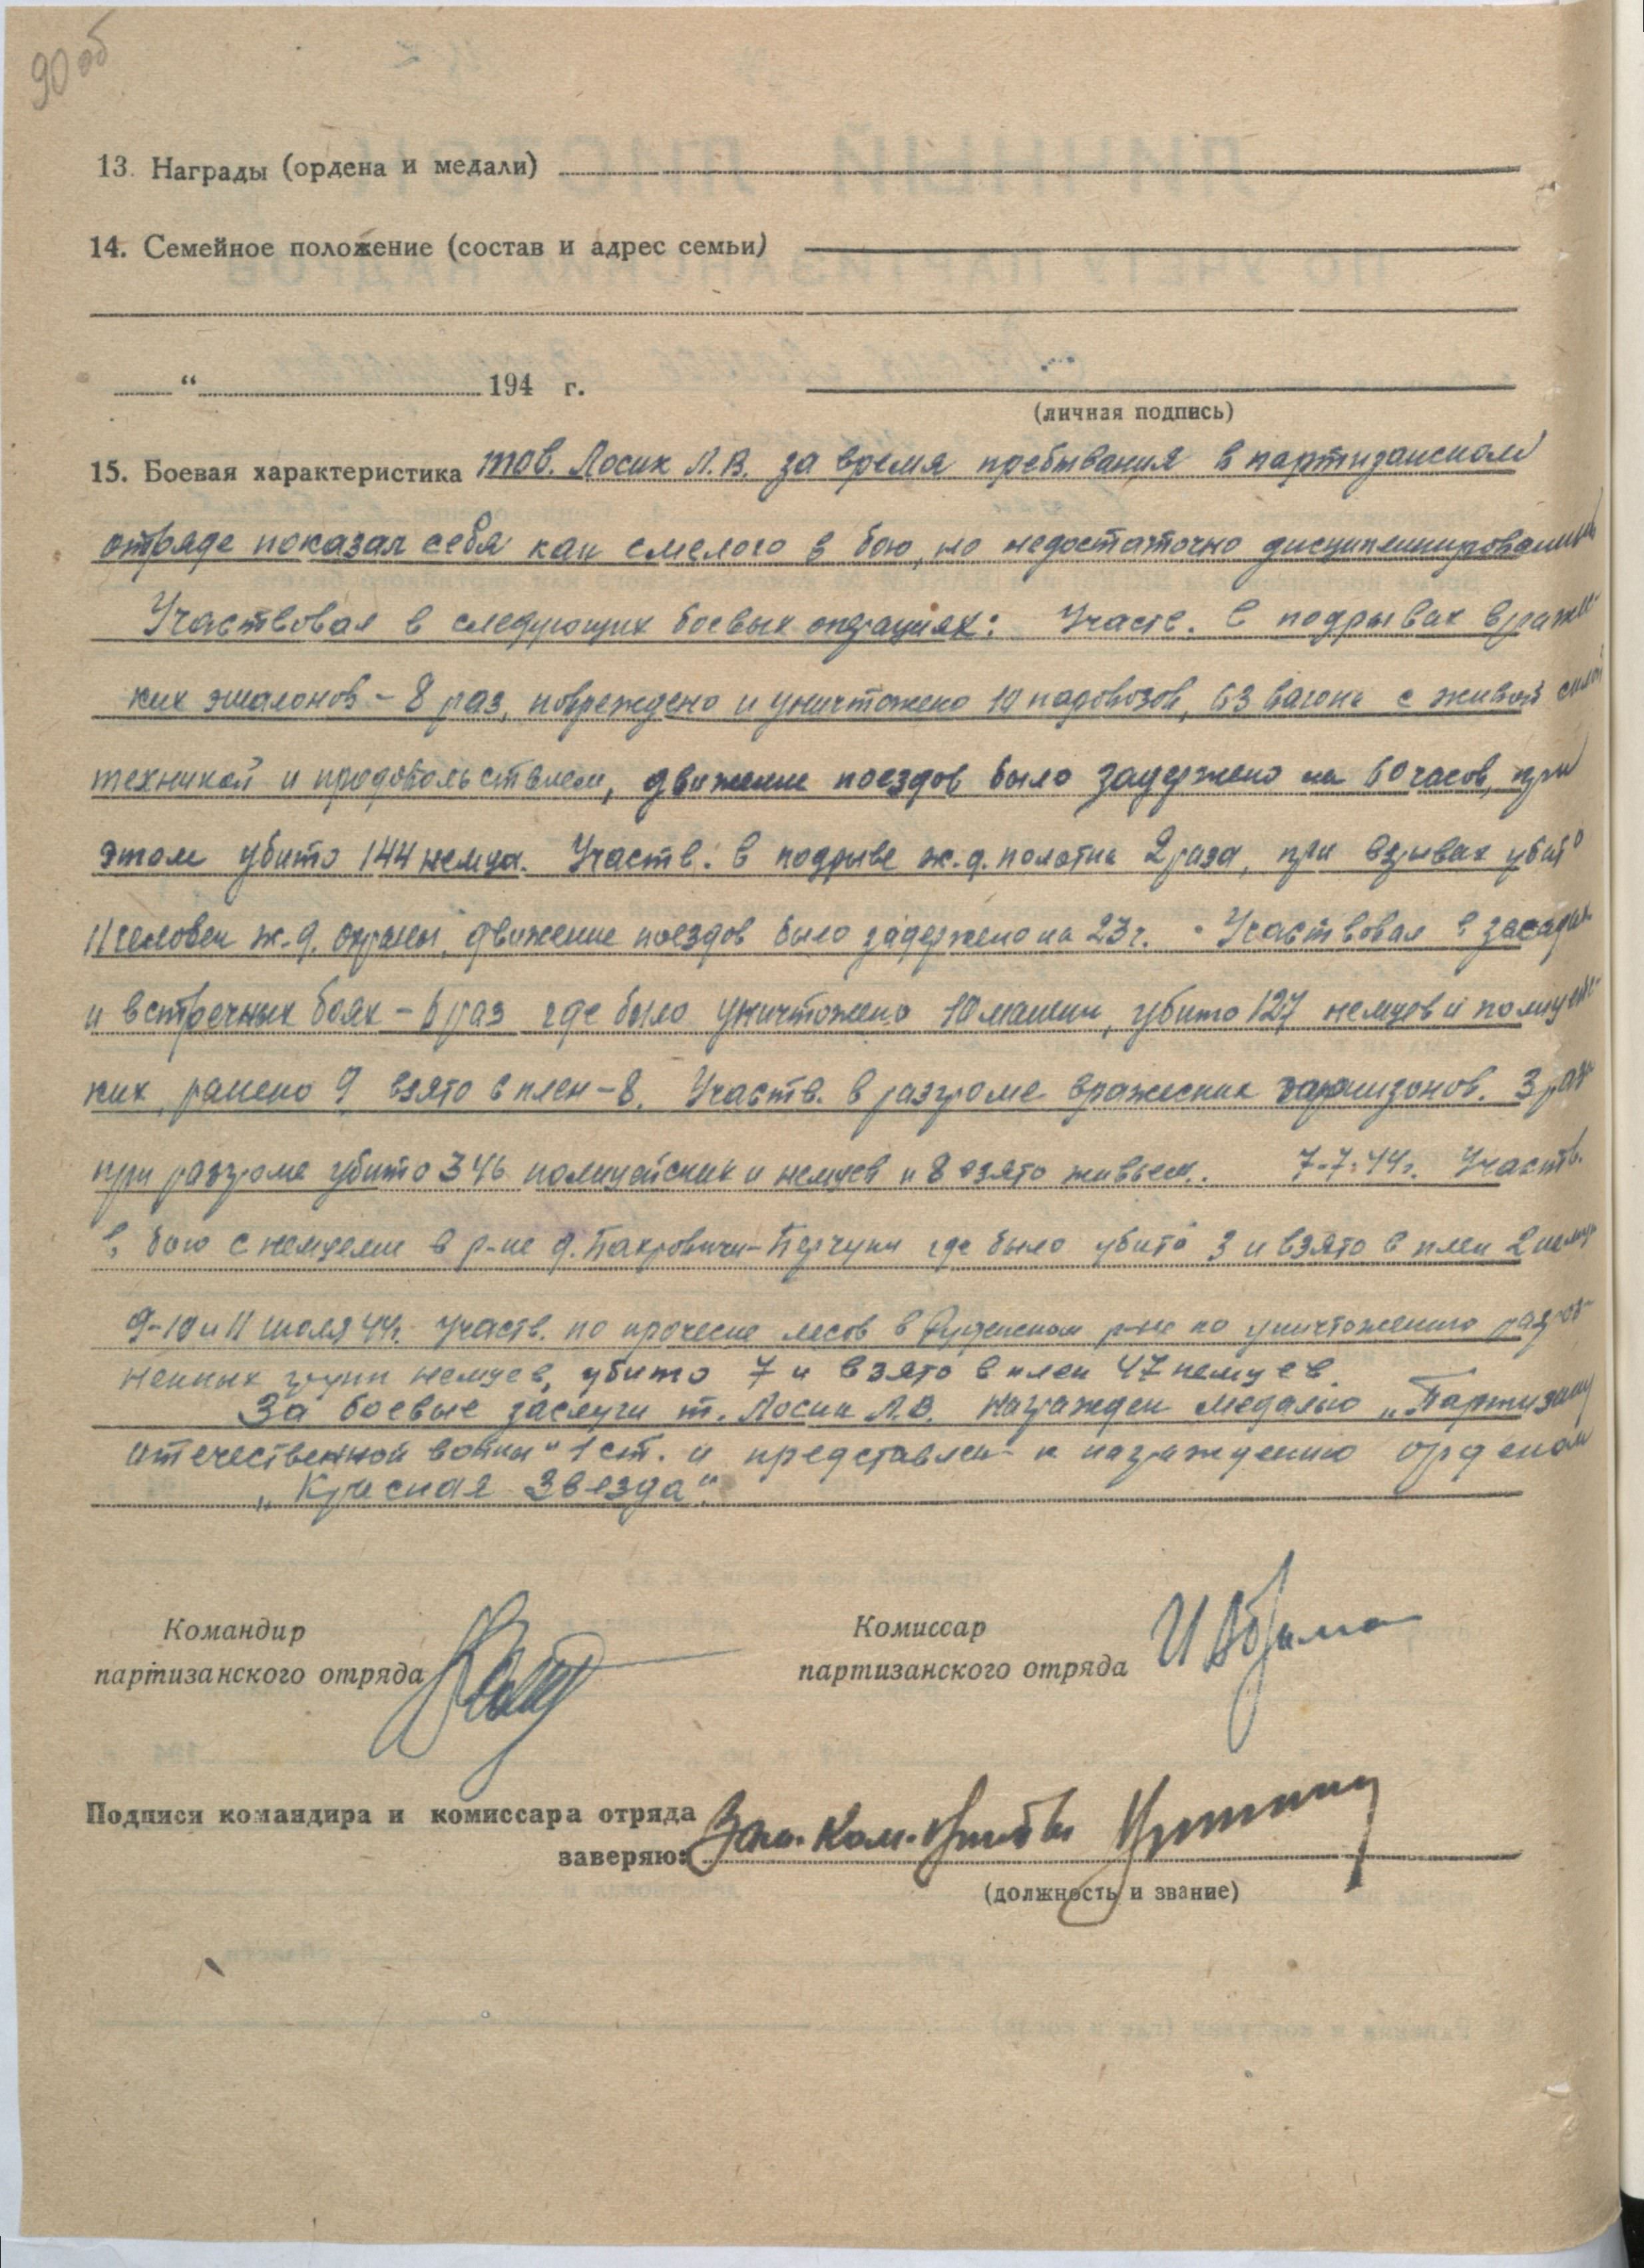 90 об
13. Награды (ордена и медали)
14. Семейное положение (состав и адрес семьи)
“ 194 г.
(личная подпись)
15. Боевая характеристика тов. Лосик Л.В. за время пребывания в партизанском
отряде показал себя как смелого в бою, но недостаточно дисциплинированный
Участвовал в следующих боевых операциях: Участв. в подрывах вражес-
ких эшалонов – 8 раз, повреждено и уничтожено 10 паровозов, 63 вагона с живой силой
техникой и продовольствием, движение поездов было задержено на 60 часов, при
этом убито 144 немца. Участв. в подрыве ж.д. полотна 2 раза, при взрывах убито
11 человек ж.д. охраны, движение поездов было задержено на 23 г. Участвовал в засадах
и встречных боях – 6 раз где было уничтожено 10 машин, убито 127 немцев и полицейс-
ких, ранено 9 взято в плен – 8. Участв. в разгроме вражеских гарнизонов. 3 раза
при разгроме убито 346 полицейских и немцев и 8 взято живьем. 7-7-44 г. Участв.
в бою с немцами в р-не д. Пакровичи – где было убито 3 и взято в плен 2 немца
9-10 и 11 июля 44 г. участв. по проческе лесов в р-не по уничтожению разроз-
ненных групп немцев, убито 7 и взято в плен 47 немцев.
За боевые заслуги т. Лосик Л.В. награжден медалью „Партизану
отечественной войны“ 1 ст. и представлен к награждению орденом
„Красная Звезда“.
Командир
партизанского отряда
Комиссар
партизанского отряда
Подписи командира и комиссара отряда
заверяю: Зам. Ком.
(должность и звание)